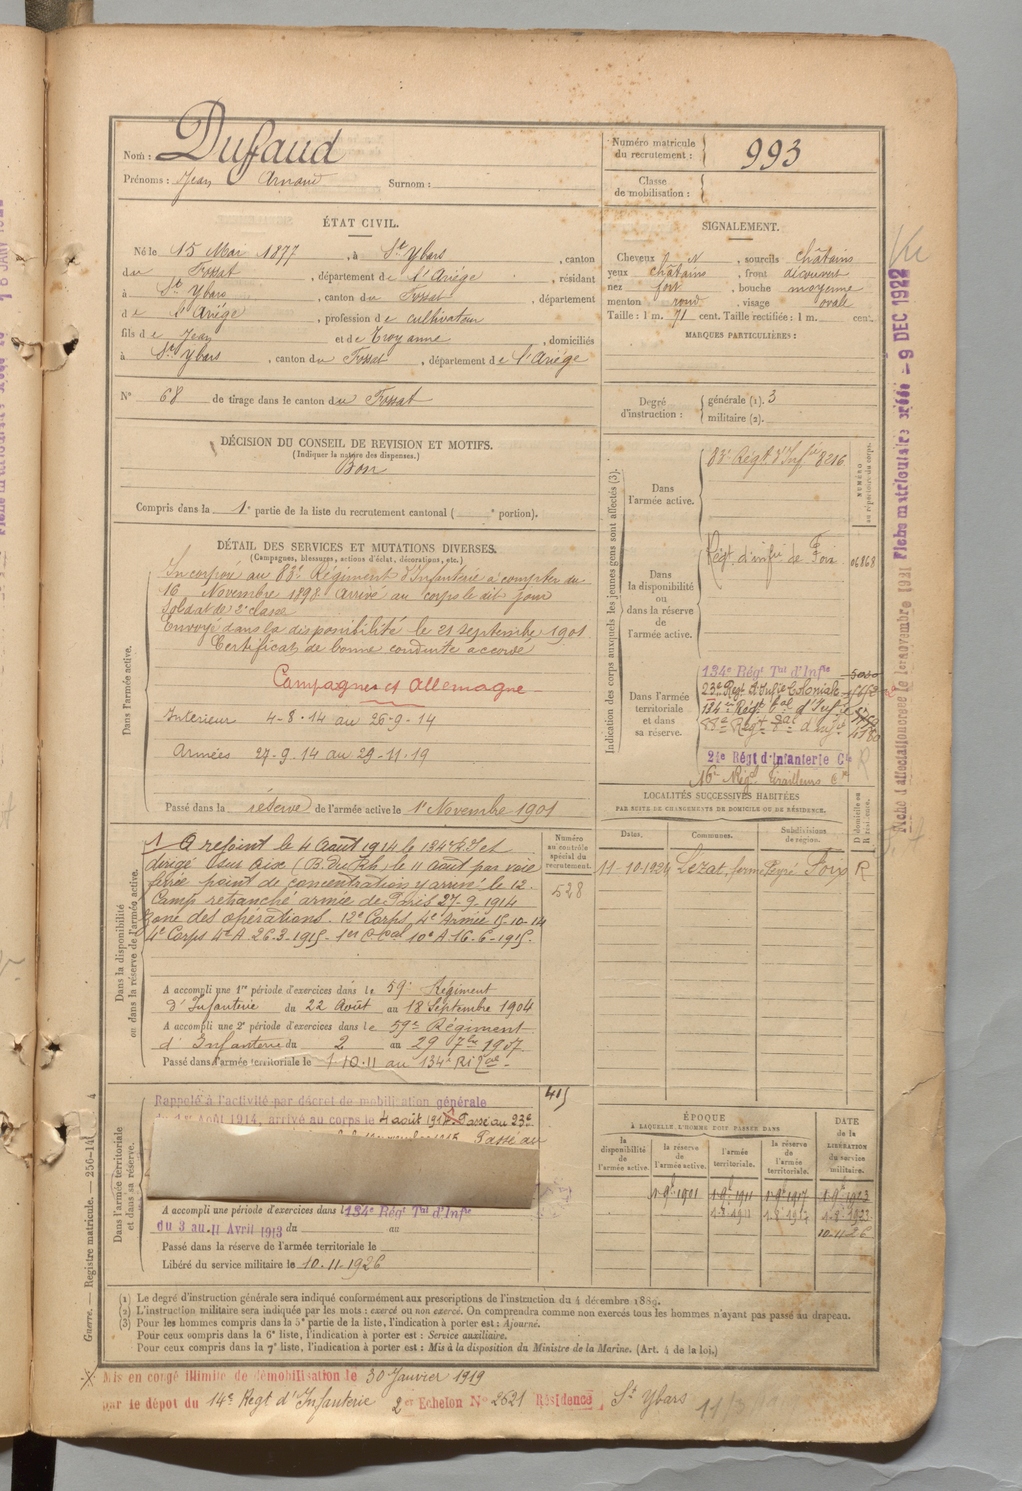 Nom : Dufaud
Prénoms : Jean Arnaud Surnom :
Numéro matricule du recrutement : 993
Classe de mobilisation :
ÉTAT CIVIL.
Né le 15 Mai 1877, à St Ybars, canton
du Fossat, département de l'Ariège, résidant
à St Ybars, canton du Fossat, département
de l'Ariège, profession de cultivateur
fils de Jean et de Troy anne, domiciliés
à St Ybars, canton du Fossat, département de l'Ariège
N° 68 de tirage dans le canton du Fossat
SIGNALEMENT.
Cheveux N, sourcils châtains
yeux châtains, front découvert
nez fort, bouche moyenne
menton rond, visage ovale
Taille : 1 m. 71 cent. Taille rectifiée : 1 m. cent.
MARQUES PARTICULIÈRES :
Degré d'instruction : générale (1). 3
militaire (2).
DÉCISION DU CONSEIL DE REVISION ET MOTIFS.
(Indiquer la nature des dispenses.)
Bon
Compris dans la 1e partie de la liste du recrutement cantonal ( e portion).
DÉTAIL DES SERVICES ET MUTATIONS DIVERSES.
(Campagnes, blessures, actions d'éclat, décorations, etc.)
Dans l'armée active.
Incorporé au 83e Régiment d'Infanterie à compter du
16 Novembre 1898 Arrivé au corps le dit jour
Soldat de 2e classe
Envoyé dans la disponibilité le 21 septembre 1901
Certificat de bonne conduite accordé
Campagnes ct Allemagne
Intérieur 4-8-14 au 26-9-14
Armées 27-9-14 au
Passé dans la réserve de l'armée active le 1er Novembre 1901
Indication des corps auxquels les jeunes gens sont affectés (3).
NUMÉRO au répertoire du corps.
Dans l'armée active.
83e Régt d'Infie 8216
Dans la disponibilité ou dans la réserve de l'armée active.
Régt d'infie de Foix
Dans l'armée territoriale et dans sa réserve.
134e Régt Tal d'Infie
23e Régt d'Infie Coloniale
134e Régt tal d'Infie
24e Régt d'Infanterie Cle
16e Régt Tirailleurs
LOCALITÉS SUCCESSIVES HABITÉES
PAR SUITE DE CHANGEMENTS DE DOMICILE OU DE RÉSIDENCE.
D domicile ou R résidence.
Dates. Communes. Subdivisions de région.
Lezat, ferme Peyré Foix R
Dans la disponibilité ou dans la réserve de l'armée active.
A rejoint le 4 Août 1914 le 134e R.I et
dirigé sur Aix (B. du Rh) le 11 août par voie
ferrée point de concentration y arrivé le 12.
Camp retranché armée de Paris 27-9-1914
Zone des opérations. 12e Corps 4e Armée 15-10-14
4e Corps 4e A. 26-3-1915- 1er C. Cal 10e A 16-6-1915.
Numéro au contrôle spécial du recrutement.
528
A accompli une 1re période d'exercices dans le 59e Régiment
d'Infanterie du 22 Août au 18 Septembre 1904
A accompli une 2e période d'exercices dans le 59e Régiment
d'Infanterie du 2 au 29 7bre 1907
Passé dans l'armée territoriale le 1-10-11 au 134e RI Tal
Dans l'armée territoriale et dans sa réserve.
Rappelé à l'activité par décret de mobilisation générale
du 1er Août 1914, arrivé au corps le 4 août 1914 Passé au 23e
Passé au
415
A accompli une période d'exercices dans l 134e Régt Tal d'Infie
du 3 au 11 Avril 1913 du au
Passé dans la réserve de l'armée territoriale le
Libéré du service militaire le 10-11-1926
ÉPOQUE
À LAQUELLE L'HOMME DOIT PASSER DANS
la disponibilité de l'armée active. la réserve de l'armée active. l'armée territoriale. la réserve de l'armée territoriale.
DATE de la LIBÉRATION du service militaire.
10-11-26
(1) Le degré d'instruction générale sera indiqué conformément aux prescriptions de l'instruction du 4 décembre 1889.
(2) L'instruction militaire sera indiquée par les mots : exercé ou non exercé. On comprendra comme non exercés tous les hommes n'ayant pas passé au drapeau.
(3) Pour les hommes compris dans la 5e partie de la liste, l'indication à porter est : Ajourné.
Pour ceux compris dans la 6e liste, l'indication à porter est : Service auxiliaire.
Pour ceux compris dans la 7e liste, l'indication à porter est : Mis à la disposition du Ministre de la Marine. (Art. 4 de la loi.)
Guerre. — Registre matricule. — 256-14
Mis en congé illimité de démobilisation le 30 Janvier 1919
par le dépot du 14e Regt d'Infanterie 2er Echelon N° 2621 Résidence St Ybars
Fiche matriculaire créée - 9 DEC 1922
Fiche d'affectation créée le 1er novembre 1921